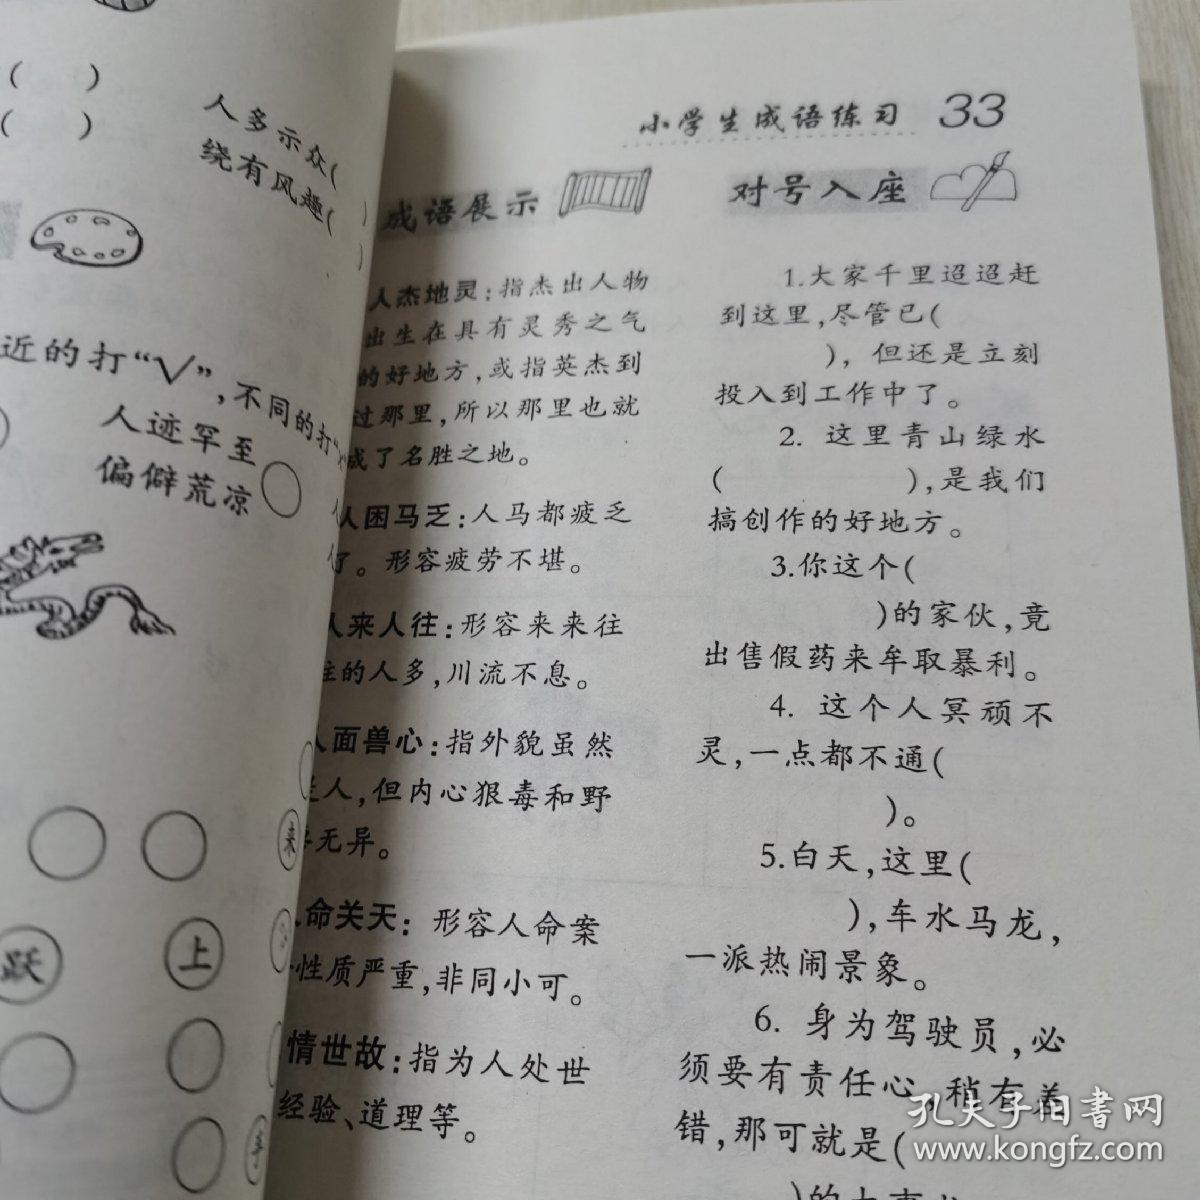 (　　)
(　　)
人多示众(　　)
绕有风趣(　　)
近的打“√”,不同的打“
人迹罕至
偏僻荒凉
来
跃
上
小学生成语练习 33
成语展示
人杰地灵:指杰出人物
出生在具有灵秀之气
的好地方,或指英杰到
过那里,所以那里也就
成了名胜之地。
人困马乏:人马都疲乏
了。形容疲劳不堪。
人来人往:形容来来往
往的人多,川流不息。
人面兽心:指外貌虽然
是人,但内心狠毒和野
无异。
命关天: 形容人命案
性质严重,非同小可。
情世故:指为人处世
经验、道理等。
对号入座
1.大家千里迢迢赶
到这里,尽管已(
), 但还是立刻
投入到工作中了。
2. 这里青山绿水
(　　),是我们
搞创作的好地方。
3.你这个(
)的家伙,竟
出售假药来牟取暴利。
4. 这个人冥顽不
灵,一点都不通(
)。
5.白天,这里(
),车水马龙,
一派热闹景象。
6. 身为驾驶员,必
须要有责任心,稍有差
错,那可就是(
)的大事
孔夫子旧书网
www.kongfz.com